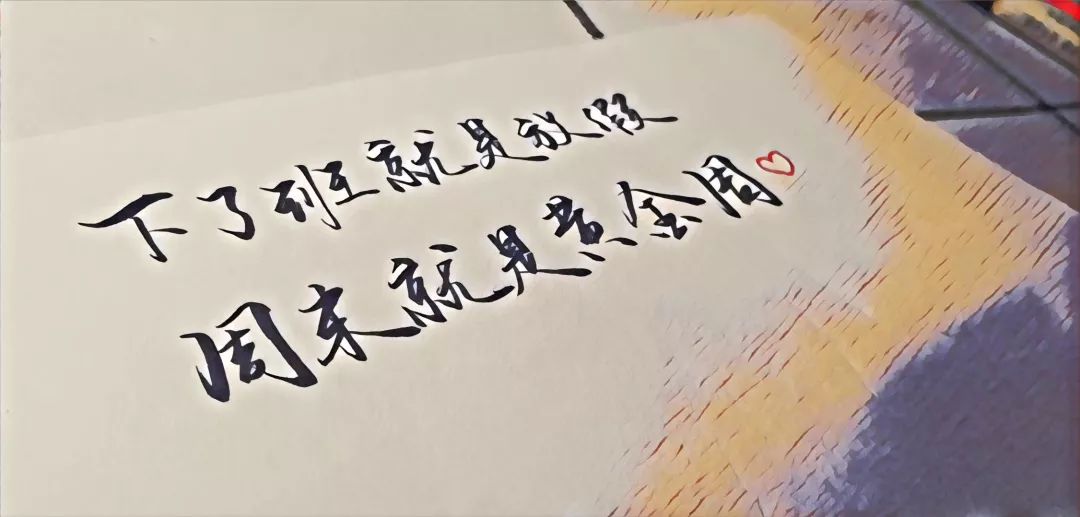 下了班就是放假
周末就是黄金周